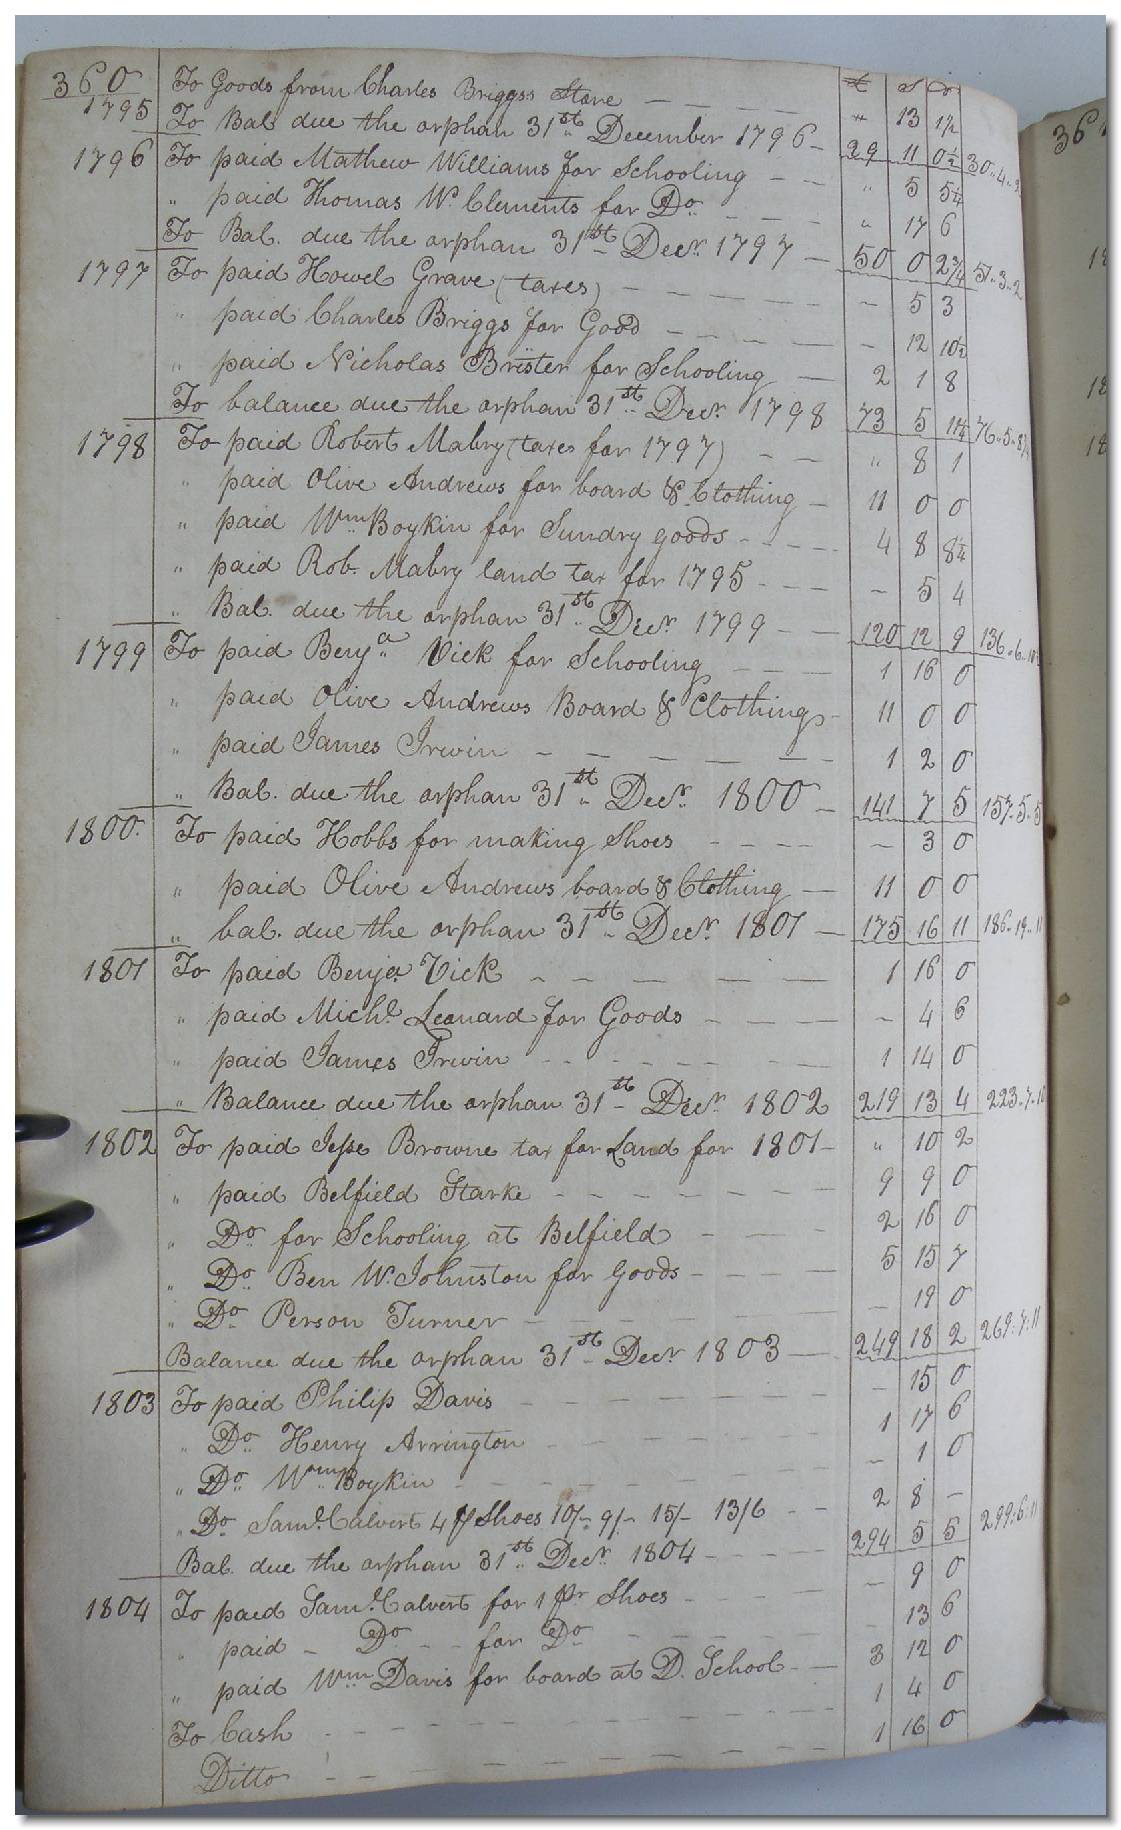 360 £ S D
1795 To Goods from Charles Briggss Store — — — — " 13 1½
To Bal. due the orphan 31st December 1796 — 29 11 0½ 30..4..2
1796 To paid Mathew Williams for Schooling — — " 5 5¼
" paid Thomas W. Clements for Do — — — " 17 6
To Bal. due the orphan 31st Decr. 1797 — 50 0 2¾ 51..3..2
1797 To paid Howel Grave (taxes) — — — — — — 5 3
" paid Charles Briggs for Good — — — — — 12 10½
" paid Nicholas Brister for Schooling — 2 1 8
To balance due the orphan 31st Decr. 1798 73 5 11¼ 76..5..8¼
1798 To paid Robert Mabry (taxes for 1797) — — " 8 1
" paid Olive Andrews for board & Clothing — 11 0 0
" paid Wm Boykin for Sundry goods — — — 4 8 8¼
" paid Rob. Mabry land tax for 1795 — — — 5 4
" Bal. due the orphan 31st Decr. 1799 — — 120 12 9 136..6..10½
1799 To paid Benja. Vick for Schooling — — 1 16 0
" paid Olive Andrews Board & Clothing — 11 0 0
" paid James Irwin — — — — — — 1 2 0
" Bal. due the orphan 31st Decr. 1800 — 141 7 5 157..5..5
1800. To paid Hobbs for making Shoes — — — — — 3 0
" paid Olive Andrews board & Clothing — 11 0 0
" bal. due the orphan 31st Decr. 1801 — 175 16 11 186..19..11
1801 To paid Benja Vick — — — — — 1 16 0
" paid Michl. Leonard for Goods — — — — — 4 6
" paid James Irwin — — — — — 1 14 0
" Balance due the orphan 31st Decr. 1802 219 13 4 223..7..10
1802 To paid Jesse Browne tax for Land for 1801 — " 10 2
" paid Belfield Starke — — — — — — 9 9 0
" Do for Schooling at Belfield — — — 2 16 0
" Do Ben W. Johnston for Goods — — — — 5 15 7
" Do Person Turner — — — — — — 19 0
Balance due the orphan 31st Decr 1803 — 249 18 2 269..7..11
1803 To paid Philip Davis — — — — — — 15 0
" Do Henry Arrington — — — — — 1 17 6
" Do Wm Boykin — — — — — — 1 0
" Do Saml. Calvert 4 pr Shoes 10/- 9/- 15/- 13/6 — — 2 8 —
Bal. due the orphan 31st Decr. 1804 — — — — 294 5 5 299..6..11
1804 To paid Saml. Calvert for 1 pr Shoes — — — — — 9 0
" paid — Do — — for Do — — — — — 13 6
" paid Wm Davis for board at D. School — — 3 12 0
To Cash — — — — — — — 1 4 0
Ditto — — — — — — — 1 16 0
361